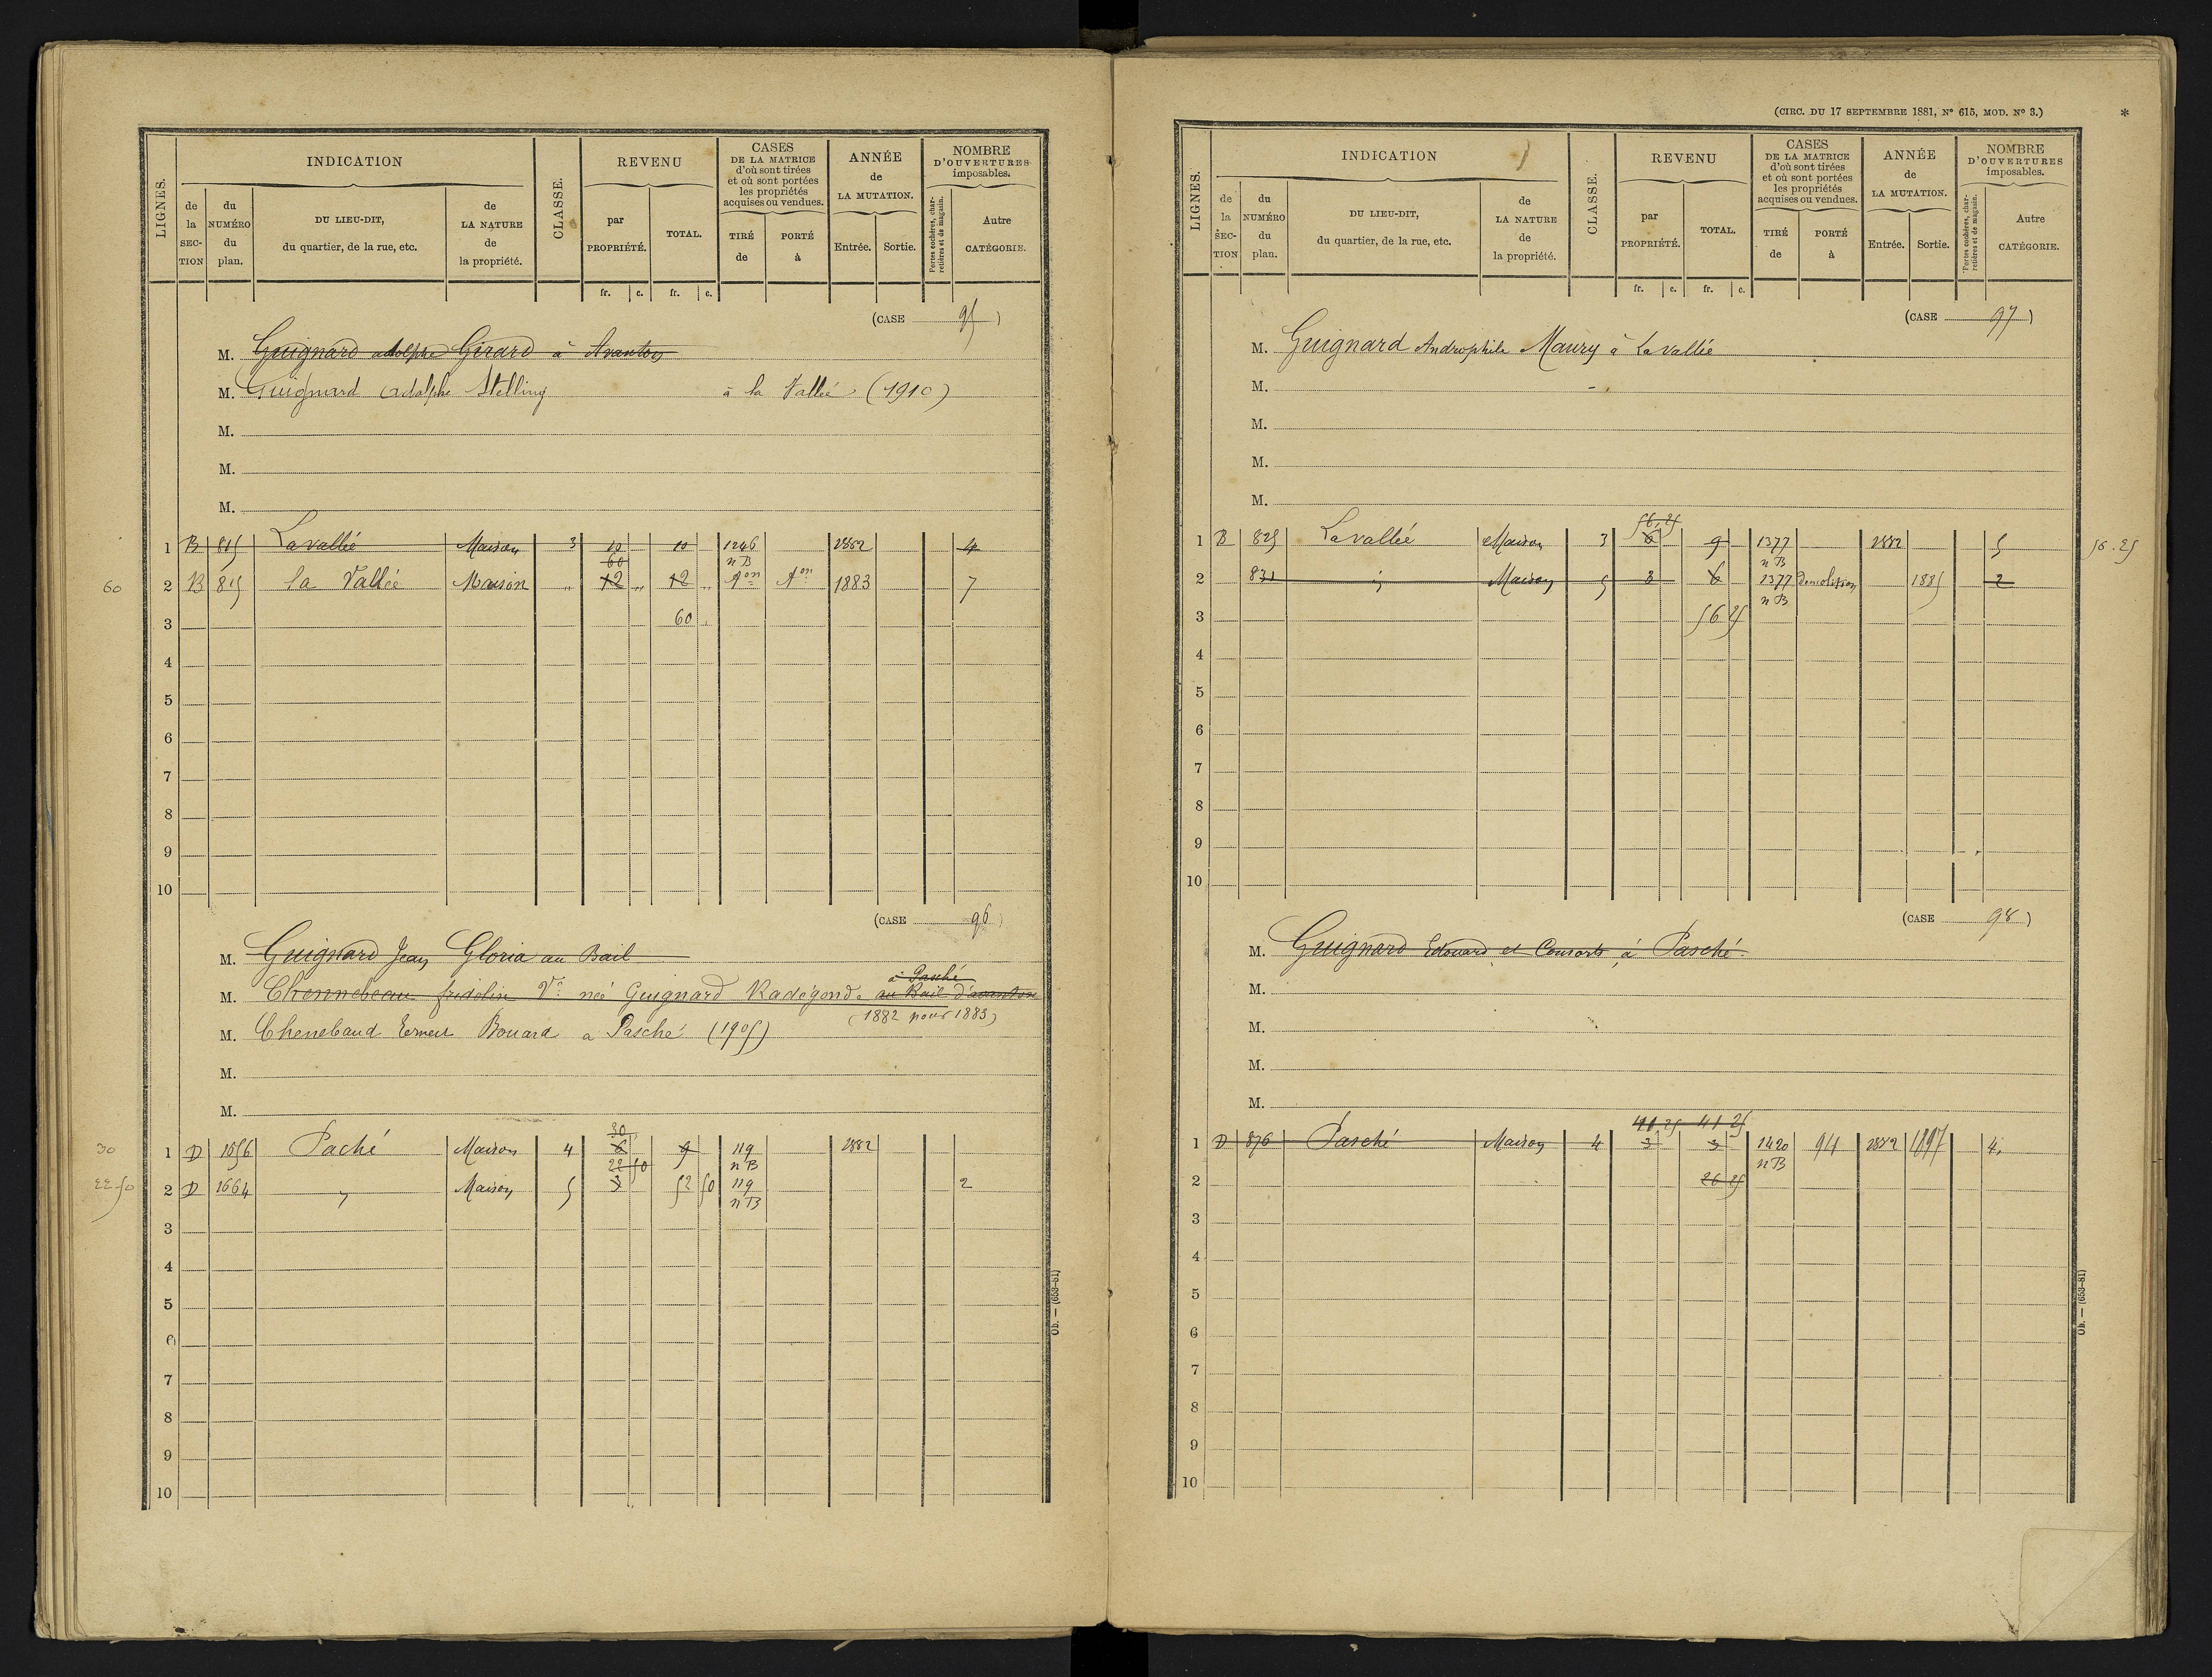 LIGNES.
INDICATION
de la SECTION
du NUMÉRO du plan.
DU LIEU-DIT, du quartier, de la rue, etc.
de LA NATURE de la propriété.
CLASSE.
REVENU
par PROPRIÉTÉ.
TOTAL.
fr. c. fr. c.
CASES DE LA MATRICE d'où sont tirées et où sont portées les propriétés acquises ou vendues.
TIRÉ de
PORTÉ à
ANNÉE de LA MUTATION.
Entrée. Sortie.
NOMBRE D'OUVERTURES imposables.
Portes cochères, charretières et de magasin.
Autre CATÉGORIE.
(CASE 95)
M. Guignard adolphe Girard à Avanton
M. Guignard adolphe Stelling à la Vallée (1910)
M.
M.
M.
1 B 815 Lavallée Maison 3 10 10 1246 nB 1882 4
60
60 2 B 815 la Vallée Maison „ 12 „ 12 „ Aon Aon 1883 7
3 60 „
4
5
6
7
8
9
10
(CASE 96)
M. Guignard Jean Gloria au Bail
à Pasché
M. Chennebeau fridolin Ve née Guignard Radégonde au Bail d'avanton
(1882 pour 1883)
M. Chenebaud Ernest Bouard a Pasché (1905)
M.
M.
30
30 1 D 1556 Paché Maison 4 6 9 119 nB 1882
22 50
22 50 2 D 1664 „ Maison 5 3 52 50 119 nB 2
3
4
5
6
7
8
9
10
Ob. — (653-81)
(CIRC. DU 17 SEPTEMBRE 1881, N° 615, MOD. N° 3.) *
LIGNES.
INDICATION
de la SECTION
du NUMÉRO du plan.
DU LIEU-DIT, du quartier, de la rue, etc.
de LA NATURE de la propriété.
CLASSE.
REVENU
par PROPRIÉTÉ.
TOTAL.
fr. c. fr. c.
CASES DE LA MATRICE d'où sont tirées et où sont portées les propriétés acquises ou vendues.
TIRÉ de
PORTÉ à
ANNÉE de LA MUTATION.
Entrée. Sortie.
NOMBRE D'OUVERTURES imposables.
Portes cochères, charretières et de magasin.
Autre CATÉGORIE.
(CASE 97)
M. Guignard Androphile Maury à Lavallée
M.
M.
M.
M.
56,25
1 B 825 Lavallée Maison 3 6 9 1377 nB 1882 5 56.25
2 831 id Maison 5 3 6 1377 nB Démolition 1885 2
3 56 25
4
5
6
7
8
9
10
(CASE 98)
M. Guignard Edouard et Consorts à Pasché
M.
M.
M.
M.
41 25 41 25
1 D 876 Pasché Maison 4 3 3 1420 nB 94 1882 1897 4
2 26 25
3
4
5
6
7
8
9
10
Ob. — (653-81)